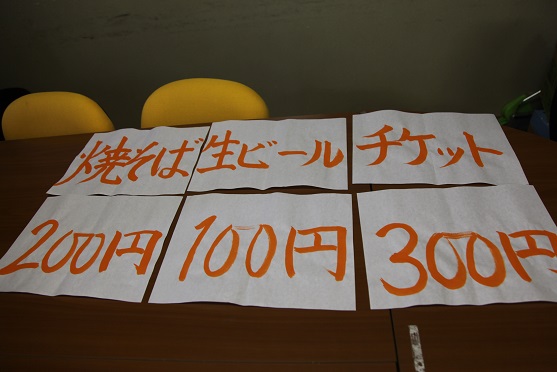 焼そば
生ビール
チケット
200円
100円
300円